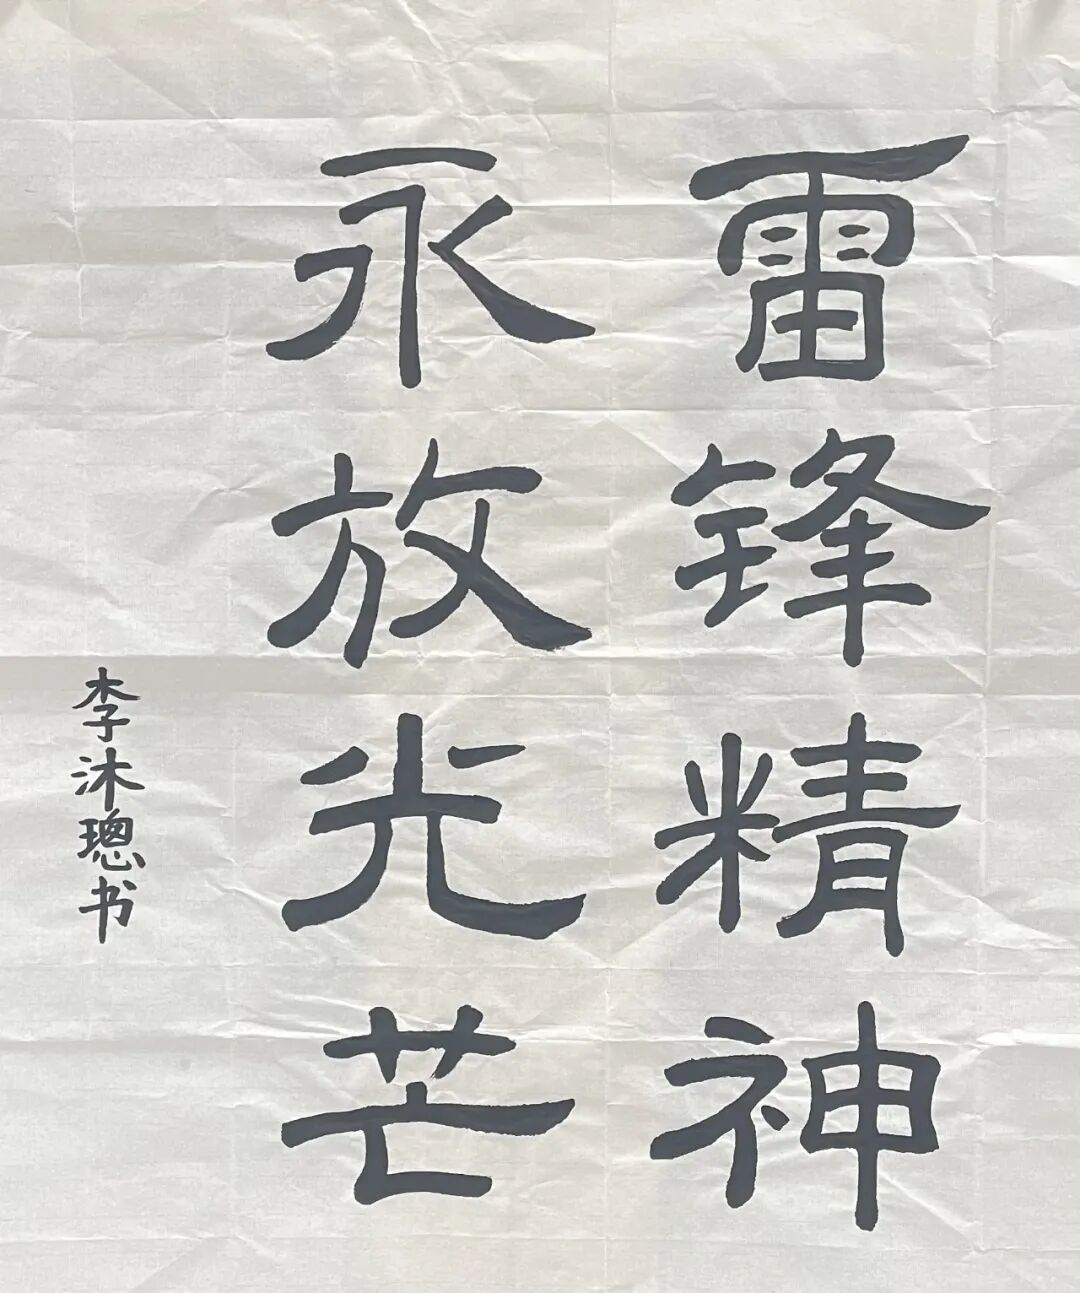 雷锋精神
永放光芒
李沐璁书